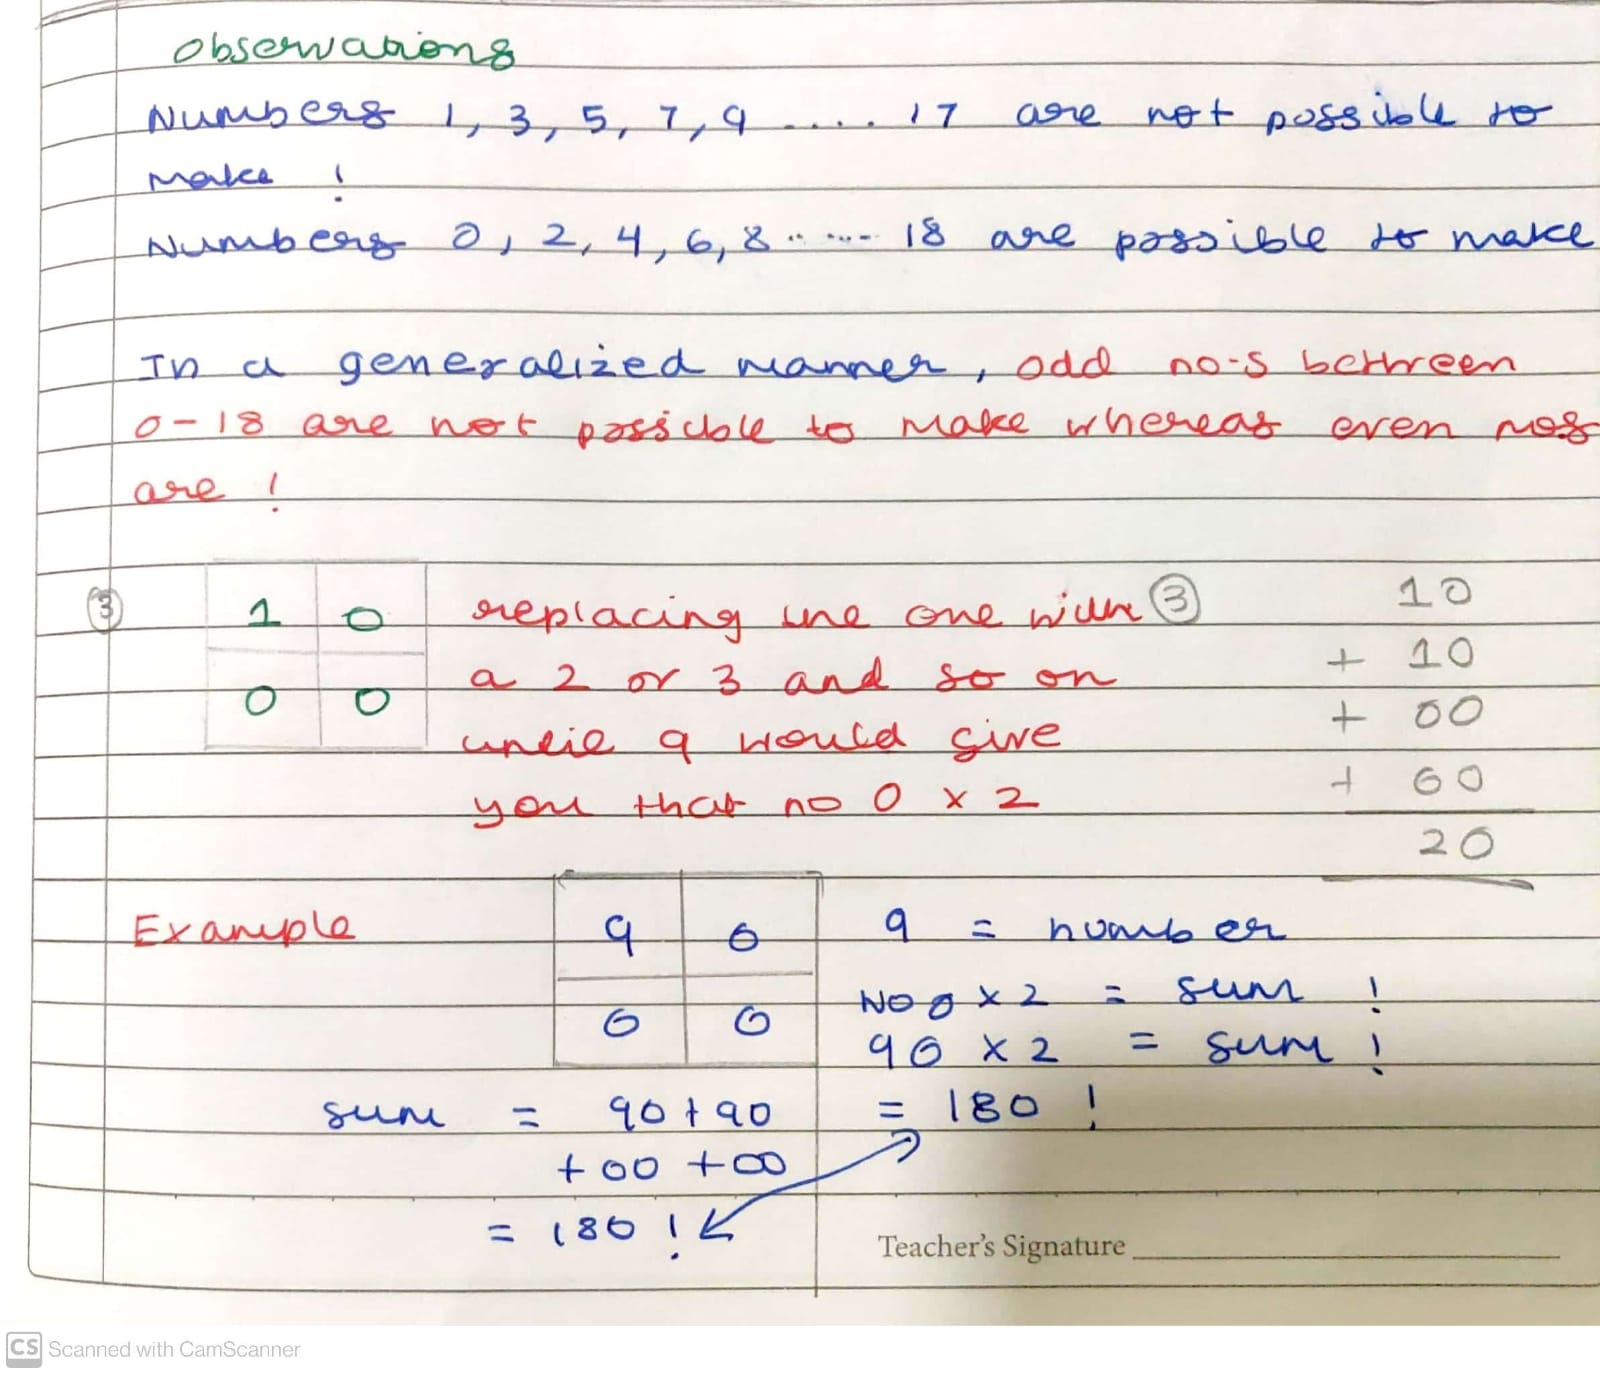 Observations
Numbers 1, 3, 5, 7, 9 .... 17 are not possible to
make !
Numbers 0, 2, 4, 6, 8 ...... 18 are possible to make
In a generalized manner, odd no-s between
0-18 are not possible to make whereas even nos
are !
3
1 0
0 0
replacing the one with 3
a 2 or 3 and so on
until 9 would give
you that no 0 x 2
10
+ 10
+ 00
+ 00
20
Example
9 0
0 0
9 = number
No 0 x 2 = sum !
90 x 2 = sum !
= 180 !
sum = 90 + 90
+ 00 + 00
= 180 !
Teacher's Signature
CS Scanned with CamScanner